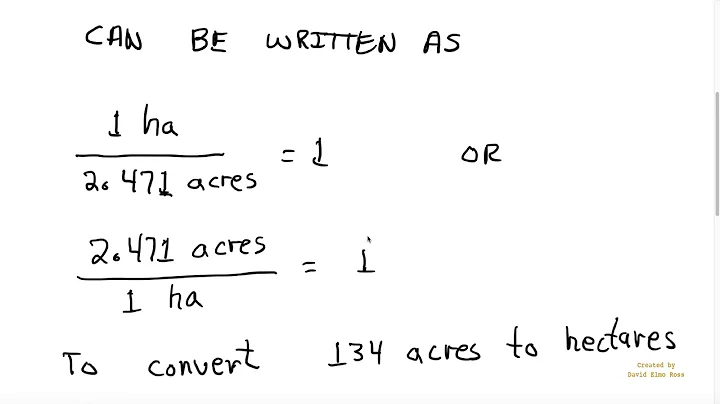 CAN BE WRITTEN AS
1 ha
2.471 acres
= 1
OR
2.471 acres
1 ha
= 1
To convert 134 acres to hectares
Created by
David Elmo Ross